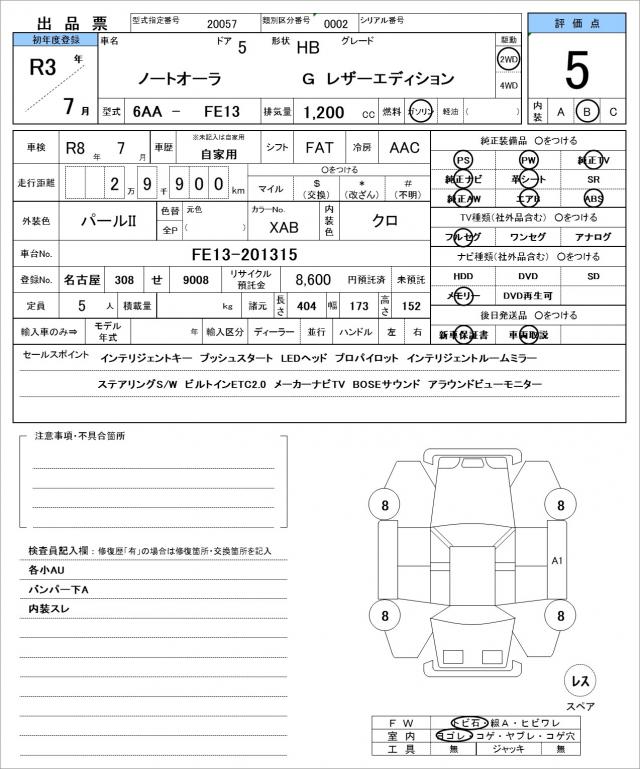 出品票 型式指定番号 20057 類別区分番号 0002 シリアル番号 評価点
初年度登録 車名 ドア 5 形状 HB グレード 駆動
R3 年 ノートオーラ G レザーエディション 2WD 5
4WD
7 月 型式 6AA － FE13 排気量 1,200 cc 燃料 ガソリン 軽油 ( ) 内装 A B C
車検 R8 年 7 月 車歴 ※未記入は自家用 自家用 シフト FAT 冷房 AAC 純正装備品 〇をつける
PS PW 純正TV
走行距離 2 万 9 千 9 0 0 km 〇をつける 純正ナビ 革シート SR
マイル $ (交換) * (改ざん) # (不明) 純正AW エアB ABS
外装色 パールII 色替 元色 カラーNo. 内装色 クロ TV種類(社外品含む) 〇をつける
全P ( ) XAB フルセグ ワンセグ アナログ
車台No. FE13-201315 ナビ種類(社外品含む) 〇をつける
登録No. 名古屋 308 せ 9008 リサイクル預託金 8,600 円預託済 未預託 HDD DVD SD
定員 5 人 積載量 kg 諸元 長さ 404 幅 173 高さ 152 メモリー DVD再生可
後日発送品 〇をつける
輸入車のみ⇒ モデル年式 年 輸入区分 ディーラー 並行 ハンドル 左 右 新車保証書 車両取説
セールスポイント インテリジェントキー プッシュスタート LEDヘッド プロパイロット インテリジェントルームミラー
ステアリングS/W ビルトインETC2.0 メーカーナビTV BOSEサウンド アラウンドビューモニター
注意事項・不具合箇所
8 8
検査員記入欄：修復歴「有」の場合は修復箇所・交換箇所を記入
各小AU A1
バンパー下A
内装スレ 8 8
レス
スペア
FW トビ石・線A・ヒビワレ
室内 ヨゴレ・コゲ・ヤブレ・コゲ穴
工具 無 ジャッキ 無